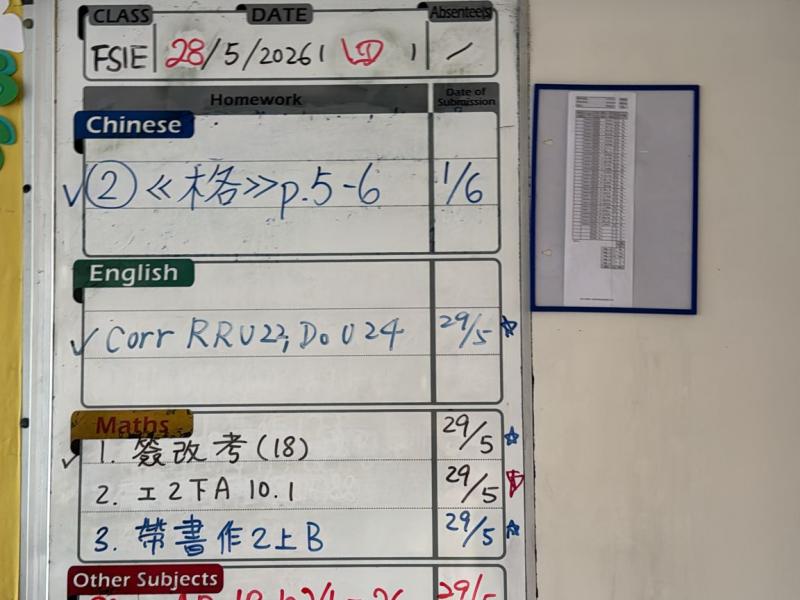 CLASS DATE Absentee(s)
FSIE 28/5/2026 ( D ) /
Homework Date of Submission
Chinese
✓ ② 《格》p.5-6 1/6
English
✓ Corr RRU22, Do U24 29/5 ☆
Maths
✓ 1. 簽改考(18) 29/5 ☆
2. 工2下A 10.1 29/5
3. 帶書作2上B 29/5 ☆
Other Subjects
29/5